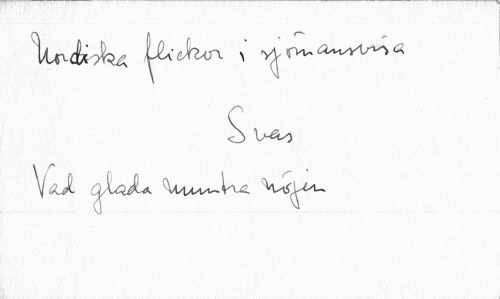 Nordiska flickor i sjömansvisa
Svas
Vad glada muntra nöjen